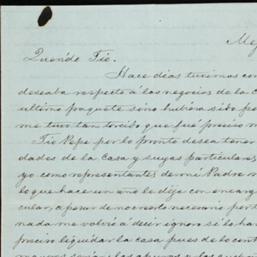 Mej
Querido Tio.
Hace dias tuvimos con
deseaba respecto á los negocios de la C
ultimo paquete sino hubiera sido po
me tuvo tan torcido que fué preciso m
Tio Pepe por lo pronto desea tener
dades de la Casa y suyas particulares,
yo como representantes de mi Padre n
lo que hace un año le dije con encarg
cular, a pesar de no creerlo necesario por
nada me volvió á decir ignoro si lo ha
preciso liquidar la casa pues de lo cont